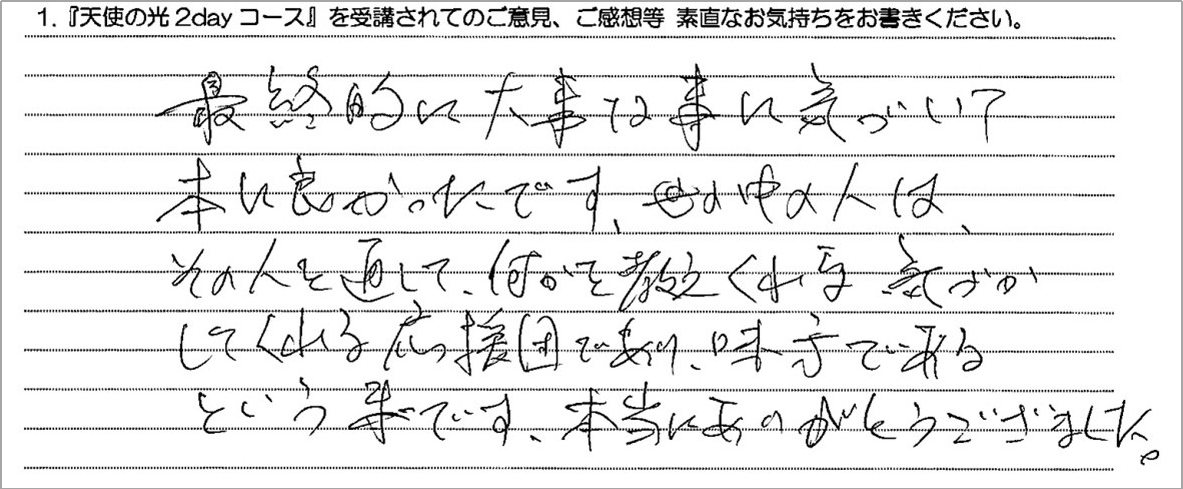 1.『天使の光2dayコース』を受講されてのご意見、ご感想等 素直なお気持ちをお書きください。
最終的に大事な事に気づいて
本に良かったです、世の中の人は、
その人を通して、何かを教えくれ 気づか
してくれる応援団であり、味方である
という事です、本当にありがとうございました。